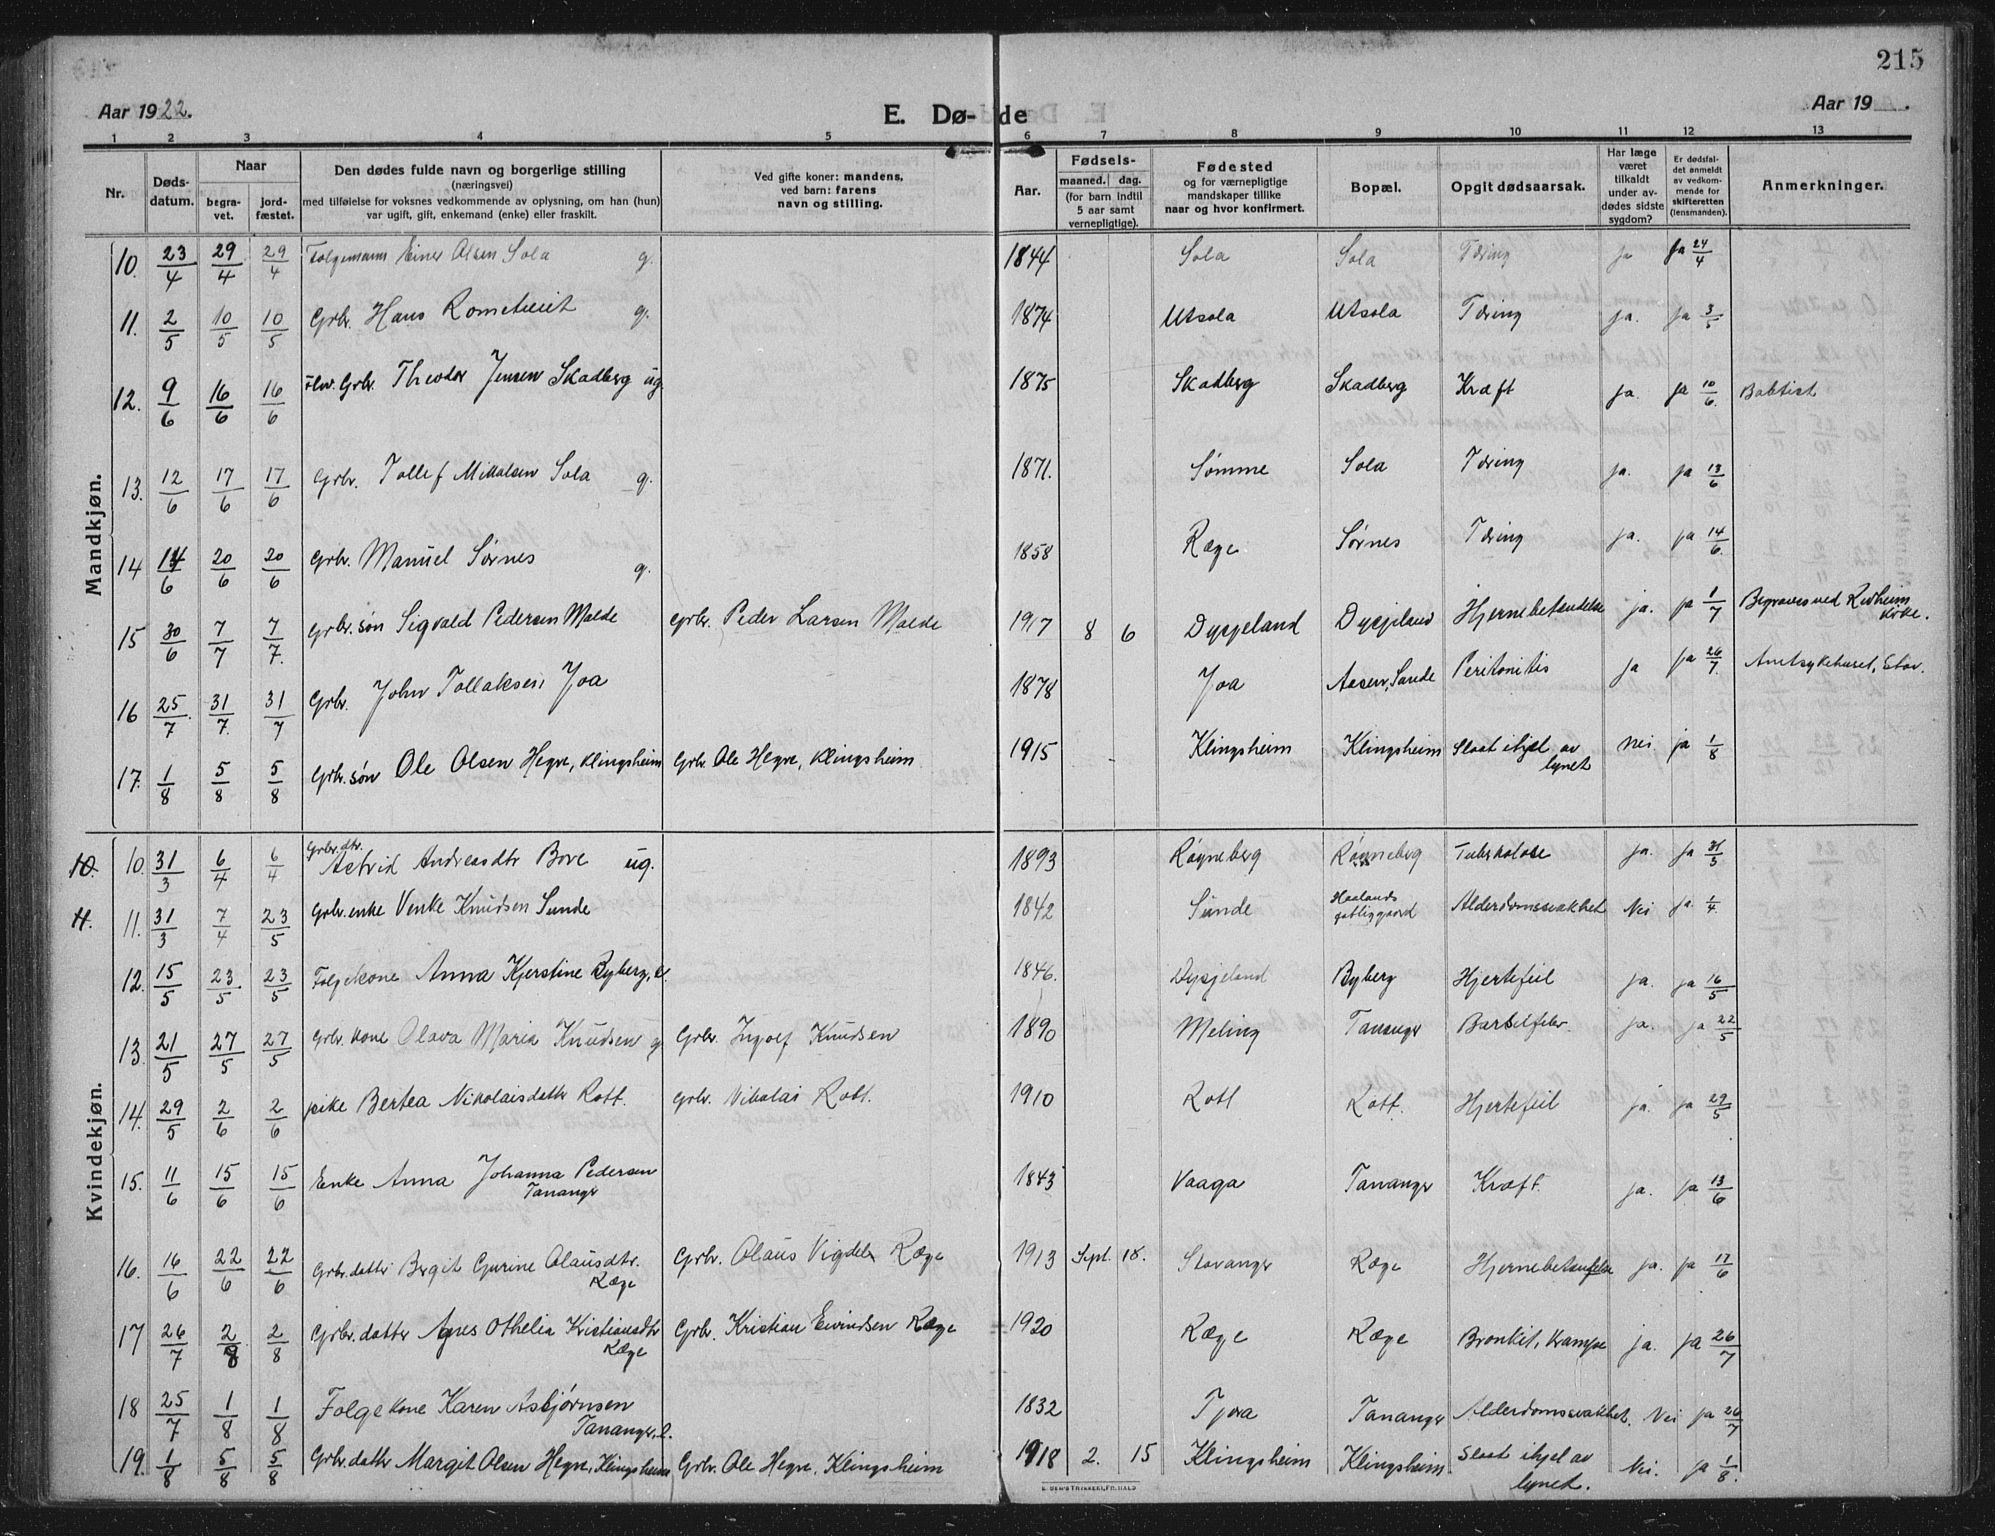 215
Aar 1922.
E. Dø- de
Aar 19 .
1 2 3 4 5 6 7 8 9 10 11 12 13
Nr.
Døds-
datum.
Naar
begra-
vet.
jord-
fæstet.
Den dødes fulde navn og borgerlige stilling
(næringsvei)
med tilføielse for voksnes vedkommende av oplysning, om han (hun)
var ugift, gift, enkemand (enke) eller fraskilt.
Ved gifte koner: mandens,
ved barn: farens
navn og stilling.
Aar.
Fødsels-
maaned. dag.
(for barn indtil
5 aar samt
vernepligtige).
Fødested
og for værnepligtige
mandskaper tillike
naar og hvor konfirmert.
Bopæl.
Opgit dødsaarsak.
Har læge
været
tilkaldt
under av-
dødes sidste
sygdom?
Er dødsfal-
det anmeldt
av vedkom-
mende for
skifteretten
(lensmanden).
Anmerkninger.
Mandkjøn.
10. 23/4 29/4 29/4 Folgemann Einer Olsen Sola g. 1844 Sola Sola Tæring ja ja 24/4
11. 2/5 10/5 10/5 Grbr. Hans Rometveit g. 1874 Utsola Utsola Tæring ja. ja 3/5
12. 9/6 16/6 16/6 Grbr. Theodor Jensen Skadberg ug. 1875 Skadberg Skadberg Kræft ja. ja 10/6. Babtist
13. 12/6 17/6 17/6 Grbr. Tollef Mikalsen Sola g. 1871. Sømme Sola Tæring ja. ja 13/6
14 14/6 20/6 20/6 Grbr. Manuel Sørnes g. 1858 Ræge Sørnes Tæring ja. ja 14/6.
15 30/6 7/7 7/7. Grbr. søn Sigvald Pedersen Malde grbr. Peder Larsen Malde 1917 8 6 Dysjeland Dysjeland Hjernebetændelse ja. ja 1/7 Begraves ved
kirke.
16 25/7. 31/7. 31/7 Grbr. John Tollaksen Joa 1878 Joa Aasen, Sande Peritonitis ja ja 26/7. Amtsykehuset, Stav.
17. 1/8 5/8 5/8 Grbr. søn Ole Olsen Hegre, Klingsheim Grbr. Ole Hegre, Klingsheim 1915 Klingsheim Klingsheim Slaat ihjel av
lynet Nei ja 1/8
Kvindekjøn.
10. 10. 31/3 6/4 6/4 Grbr. dtr.
Astrid Andreasdtr Bore ug. 1893 Røyneberg Røyneberg Tuberkulose ja. ja 31/3
11. 11. 31/3 7/4 23/5 Grbr. enke Venke Knudsen Sunde 1842 Sunde Haalands
fattiggaard Alderdomssvakhet Nei ja 1/4.
12. 15/5 23/5 23/5 Folgekone Anna Kjerstine Byberg, e. 1846. Dysjeland Byberg Hjertefeil ja. ja 16/5
13. 21/5 27/5 27/5 Grbr. kone Olava Maria Knudsen g Grbr. Ingolf Knudsen 1890 Meling Tananger Barselfeber ja. ja 22/5
14. 29/5 2/6 2/6 pike Bertea Nikolaisdatter Rott. grbr. Nikolai Rott. 1910 Rott Rott. Hjertefeil ja. ja 29/5
15. 11/6 15/6 15/6 Enke Anna Johanna Pedersen
Tananger 1843 Vaaga Tananger Kræft. ja. ja 13/6
16. 16/6 22/6 22/6 Grbr. datter Bergit Gurine Olausdtr.
Ræge Grbr. Olaus Vigdel Ræge 1913 Sept. 18. Stavanger Ræge Hjernebetændelse ja. ja 17/6
17 26/7 2/8 2/8 Grbr. datter Agnes Othelia Kristiansdtr
Ræge Grbr. Kristian Eivindsen Ræge 1920 Ræge Ræge Bronkit, krampe ja. ja 26/7
18 25/7 1/8 1/8 Folgekone Karen Asbjørnsen
Tananger, e. 1832 Tjora Tananger Alderdomssvakhet. Nei ja 26/7
19. 1/8 5/8 5/8 Grbr. datter Margit Olsen Hegre, Klingsheim Grbr. Ole Hegre, Klingsheim 1918 2. 15 Klingsheim Klingsheim Slaat ihjel av
lynet. Nei. ja 1/8.